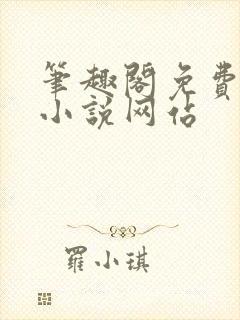 筆趣閣免費
小說网佔
羅小琪